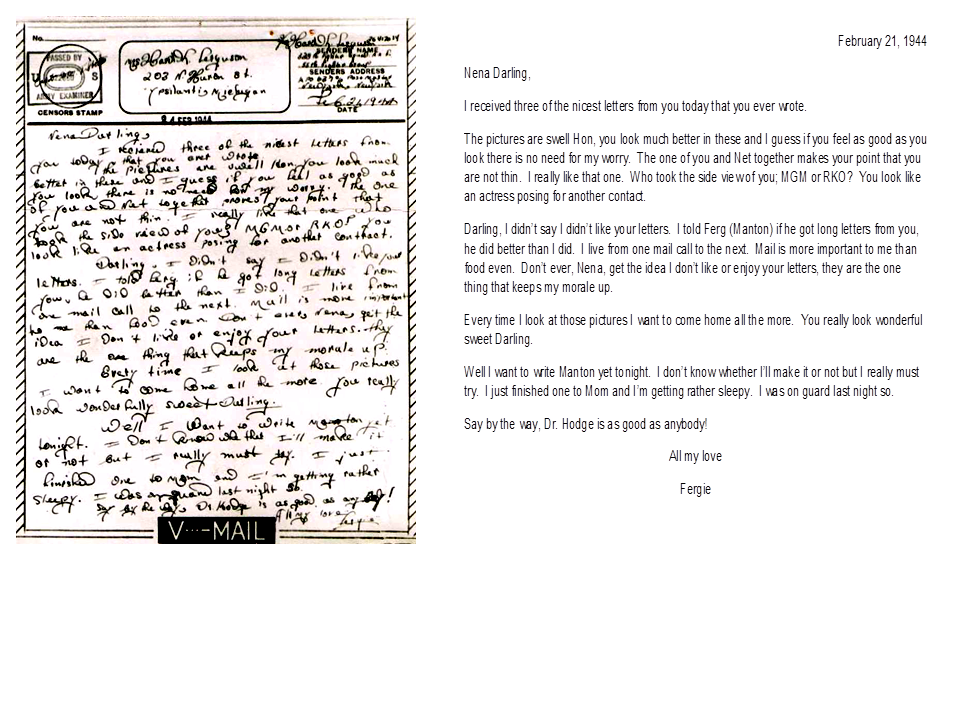 No.
PASSED BY
U S
ARMY EXAMINER
CENSORS STAMP
Ferguson
203 N. Huron St.
Ypsilanti Michigan
SENDERS NAME
SENDERS ADDRESS
DATE
24 FEB 1944
Nena Darling,
I received three of the nicest letters from
you today that you ever wrote.
The pictures are swell Hon, you look much
better in these and I guess if you feel as good as
you look there is no need for my worry. The one
of you and Net together proves your point that
you are not thin. I really like that one. Who
took the side view of you? MGM or RKO? You
look like an actress posing for another contract.
Darling, I didn't say I didn't like your
letters. I told Ferg if he got long letters from
you, he did better than I did. I live from
one mail call to the next. Mail is more important
to me than food even. Don't ever, Nena, get the
idea I don't like or enjoy your letters. they
are the one thing that keeps my morale up.
Every time I look at those pictures
I want to come home all the more. You really
look wonderfully sweet Darling.
Well I want to write Manton yet
tonight. I don't know whether I'll make it
or not but I really must try. I just
finished one to Mom and I'm getting rather
sleepy. I was on guard last night so.
Say by the way, Dr. Hodge is as good as anybody!
All my love
Fergie
V···–MAIL
February 21, 1944
Nena Darling,
I received three of the nicest letters from you today that you ever wrote.
The pictures are swell Hon, you look much better in these and I guess if you feel as good as you
look there is no need for my worry.  The one of you and Net together makes your point that you
are not thin.  I really like that one.  Who took the side view of you; MGM or RKO?  You look like
an actress posing for another contact.
Darling, I didn't say I didn't like your letters.  I told Ferg (Manton) if he got long letters from you,
he did better than I did.  I live from one mail call to the next.  Mail is more important to me than
food even.  Don't ever, Nena, get the idea I don't like or enjoy your letters, they are the one
thing that keeps my morale up.
Every time I look at those pictures I want to come home all the more.  You really look wonderful
sweet Darling.
Well I want to write Manton yet tonight.  I don't know whether I'll make it or not but I really must
try.  I just finished one to Mom and I'm getting rather sleepy.  I was on guard last night so.
Say by the way, Dr. Hodge is as good as anybody!
All my love
Fergie